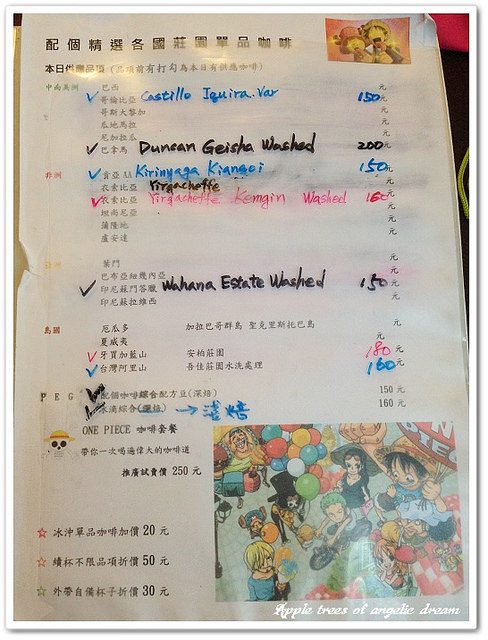 配個精選各國莊園單品咖啡
本日供應品項 (品項前有打勾為本日有供應咖啡)
中南美洲 巴西 元
✓ 哥倫比亞 Castillo Iquira. Var 150 元
哥斯大黎加 元
瓜地馬拉 元
尼加拉瓜 元
✓ 巴拿馬 Duncan Geisha Washed 200 元
非洲 ✓ 肯亞AA Kirinyaga Kiangoi 150 元
衣索比亞 Yirgacheffe 元
✓ 衣索比亞 Yirgacheffe Kemgin Washed 160 元
坦尚尼亞 元
蒲隆地 元
盧安達 元
葉門 元
巴布亞紐幾內亞 元
✓ 印尼蘇門答臘 Wahana Estate Washed 150 元
印尼蘇拉維西 元
島國 厄瓜多 加拉巴哥群島 聖克里斯托巴島 元
夏威夷 元
✓ 牙買加藍山 安柏莊園 180 元
✓ 台灣阿里山 吾佳莊園水洗處理 160 元
P E G 配個咖啡綜合配方豆(深焙) 150 元
冰滴綜合 → 淺焙 160 元
ONE PIECE 咖啡套餐
帶你一次喝遍偉大的咖啡道
推廣試賣價 250 元
☆ 冰沖單品咖啡加價 20 元
☆ 續杯不限品項折價 50 元
☆ 外帶自備杯子折價 30 元
Apple trees of angelic dream